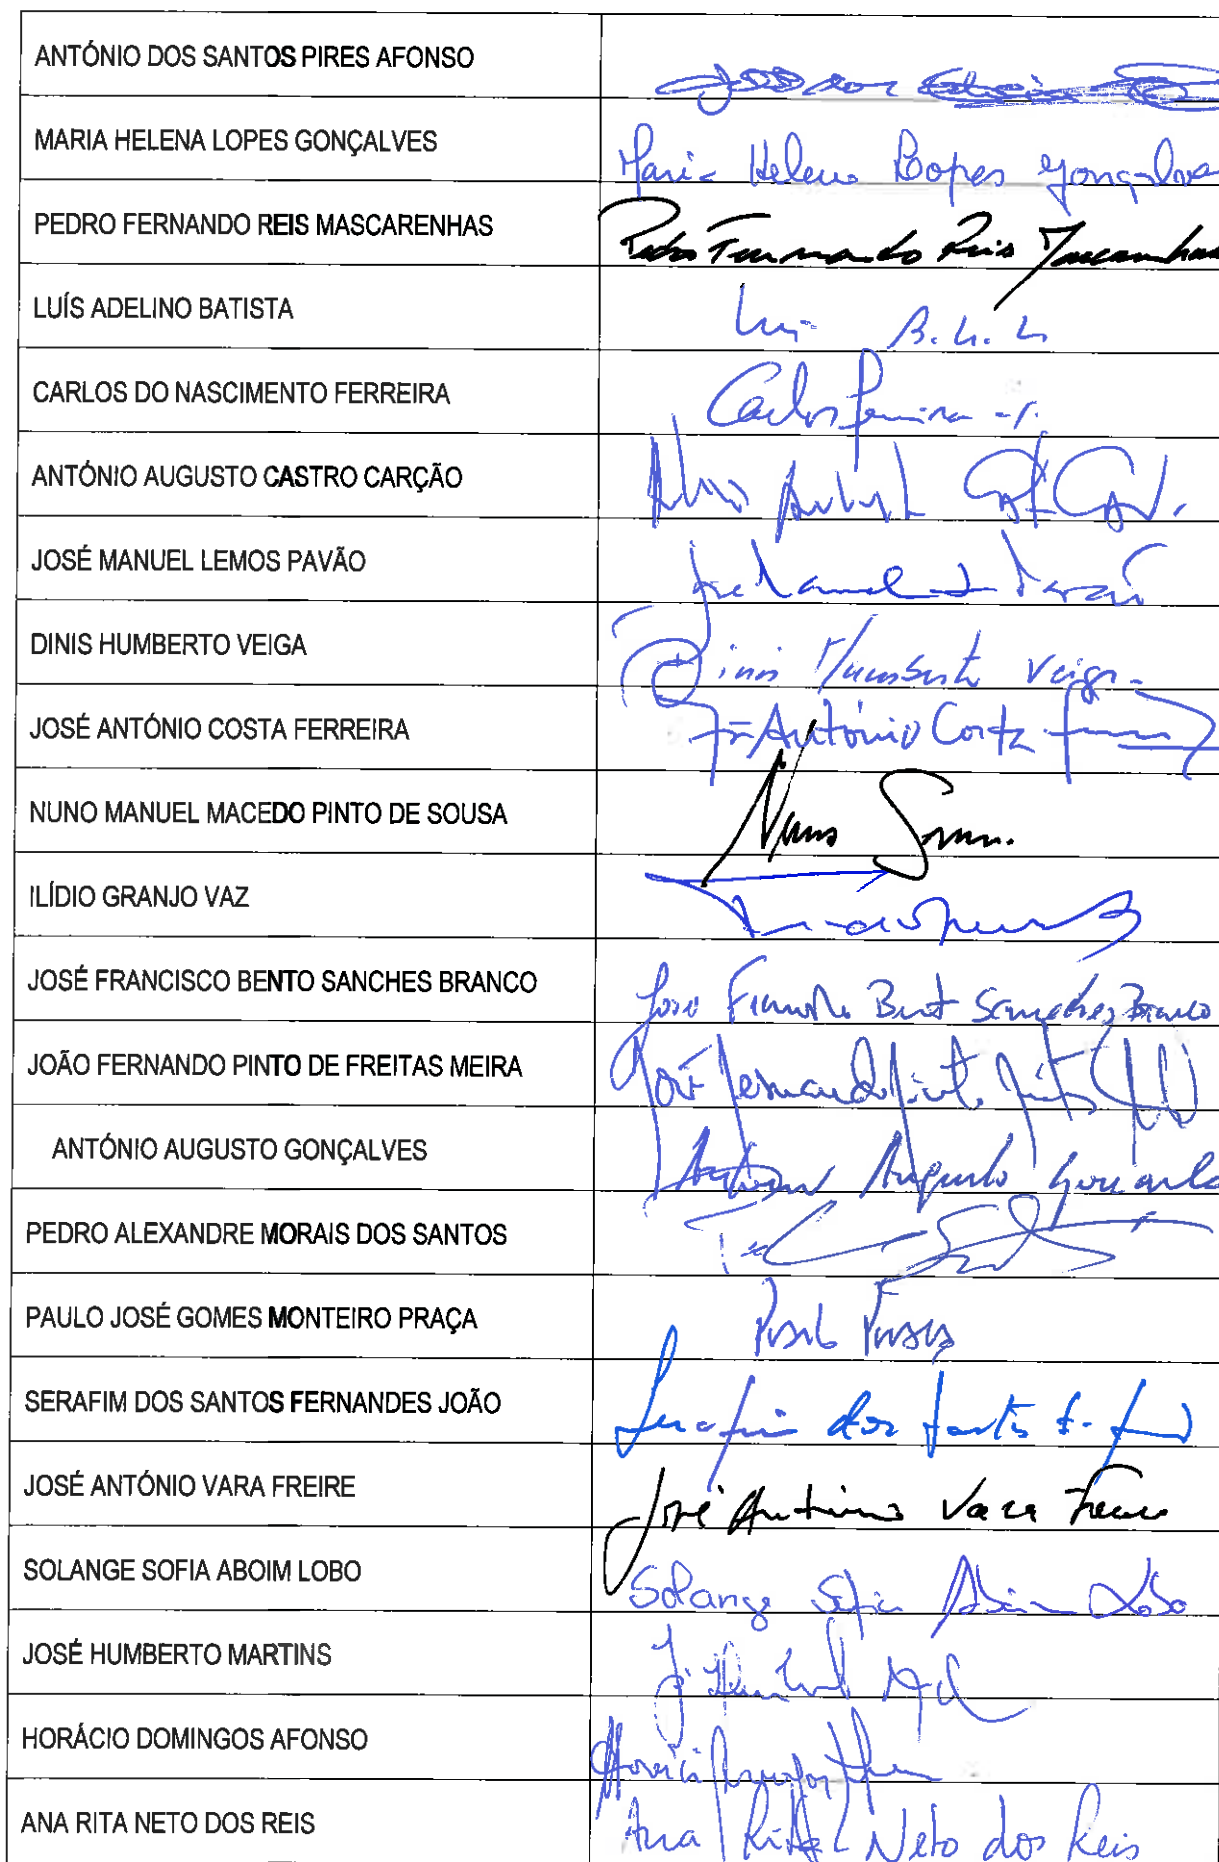 ANTÓNIO DOS SANTOS PIRES AFONSO
MARIA HELENA LOPES GONÇALVES Maria Helena Lopes Gonçalves
PEDRO FERNANDO REIS MASCARENHAS Pedro Fernando Reis Mascarenhas
LUÍS ADELINO BATISTA
CARLOS DO NASCIMENTO FERREIRA Carlos Ferreira
ANTÓNIO AUGUSTO CASTRO CARÇÃO
JOSÉ MANUEL LEMOS PAVÃO Manuel Pavão
DINIS HUMBERTO VEIGA Dinis Humberto Veiga
JOSÉ ANTÓNIO COSTA FERREIRA António Costa
NUNO MANUEL MACEDO PINTO DE SOUSA Nuno Sousa
ILÍDIO GRANJO VAZ
JOSÉ FRANCISCO BENTO SANCHES BRANCO José Francisco Bento Sanches Branco
JOÃO FERNANDO PINTO DE FREITAS MEIRA João Fernando Pinto
ANTÓNIO AUGUSTO GONÇALVES António Augusto Gonçalves
PEDRO ALEXANDRE MORAIS DOS SANTOS
PAULO JOSÉ GOMES MONTEIRO PRAÇA Paulo Praça
SERAFIM DOS SANTOS FERNANDES JOÃO Serafim dos Santos F.
JOSÉ ANTÓNIO VARA FREIRE José António Vara Freire
SOLANGE SOFIA ABOIM LOBO Solange Sofia Aboim Lobo
JOSÉ HUMBERTO MARTINS
HORÁCIO DOMINGOS AFONSO
ANA RITA NETO DOS REIS Ana Rita Neto dos Reis